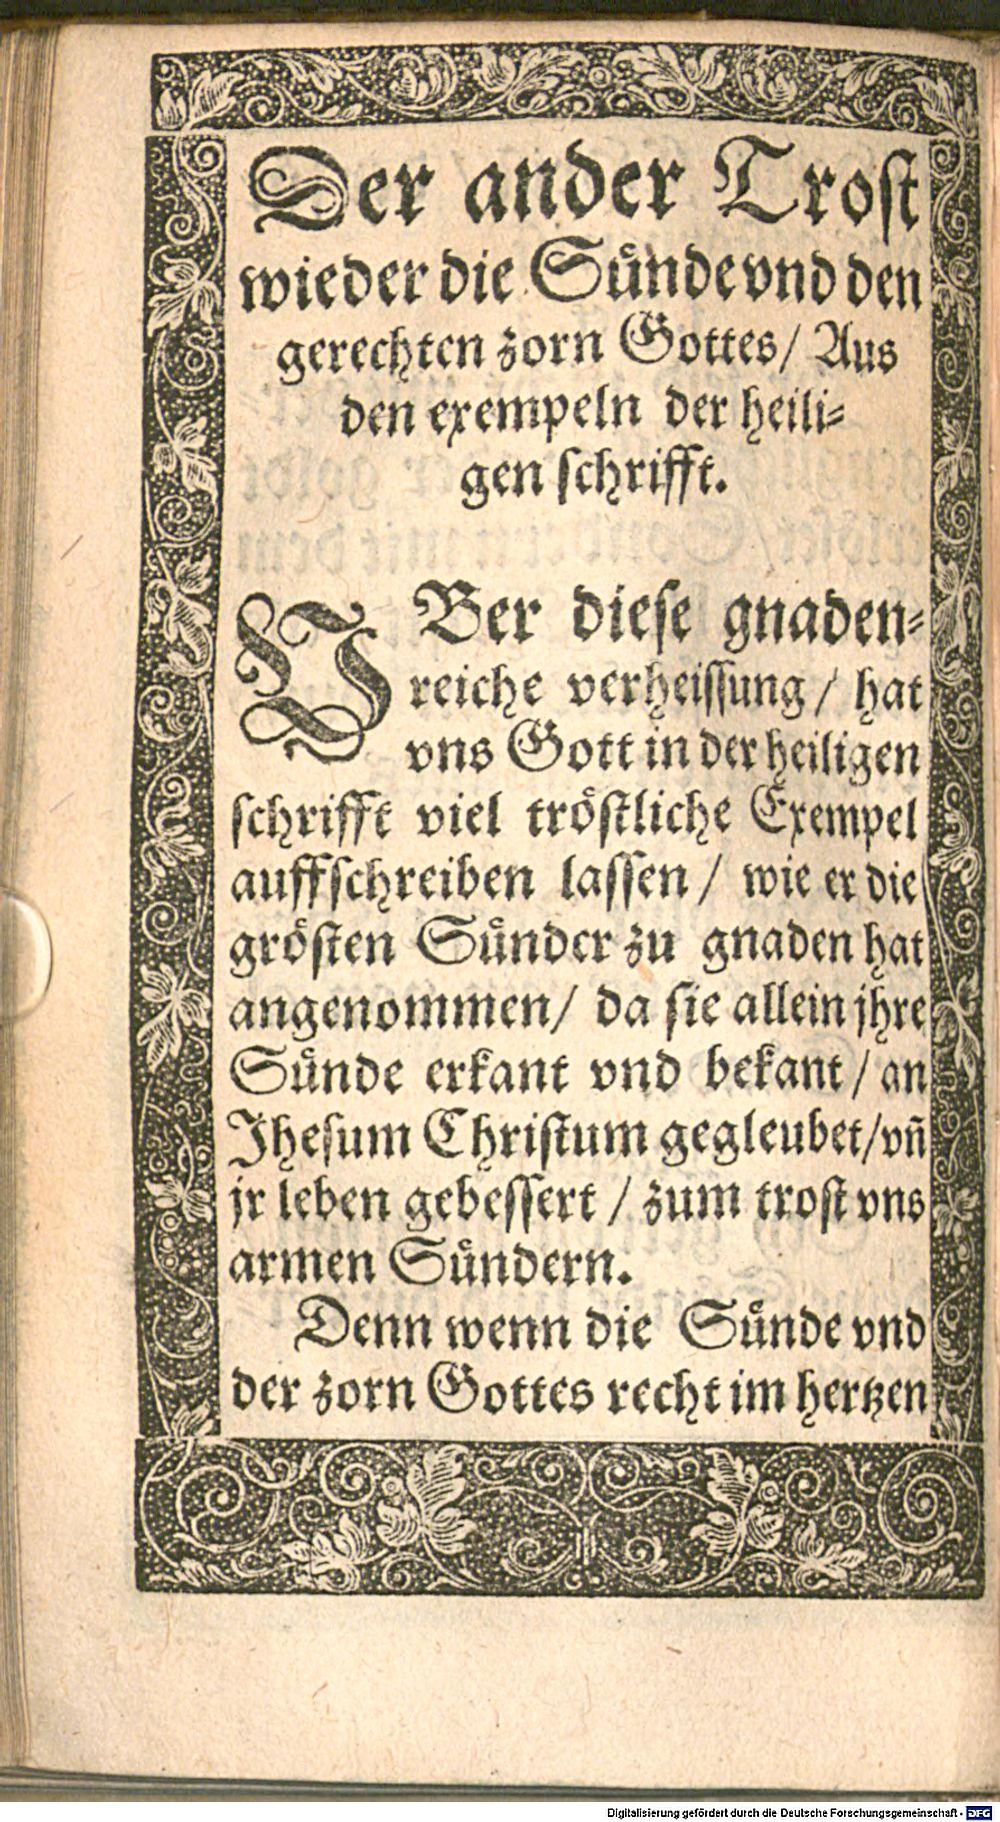 Der ander Trost
wieder die Sünde vnd den
gerechten zorn Gottes/ Aus
den exempeln der heili=
gen schrifft.
VBer diese gnaden=
reiche verheissung / hat
vns Gott in der heiligen
schrifft viel tröstliche Exempel
auffschreiben lassen / wie er die
grösten Sünder zu gnaden hat
angenommen/ da sie allein jhre
Sünde erkant vnd bekant / an
Jhesum Christum gegleubet/vñ
jr leben gebessert / zum trost vns
armen Sündern.
Denn wenn die Sünde vnd
der zorn Gottes recht im hertzen
Digitalisierung gefördert durch die Deutsche Forschungsgemeinschaft - DFG